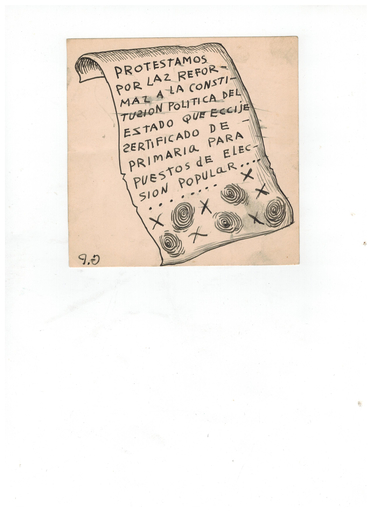 PROTESTAMOS
POR LAZ REFOR-
MAZ A LA CONSTI-
TUZION POLITICA DEL
ESTADO QUE ECCIJE
ZERTIFICADO DE
PRIMARIA PARA
PUESTOS DE ELEC-
SION POPULAR....
X
X X X
X X
G.P